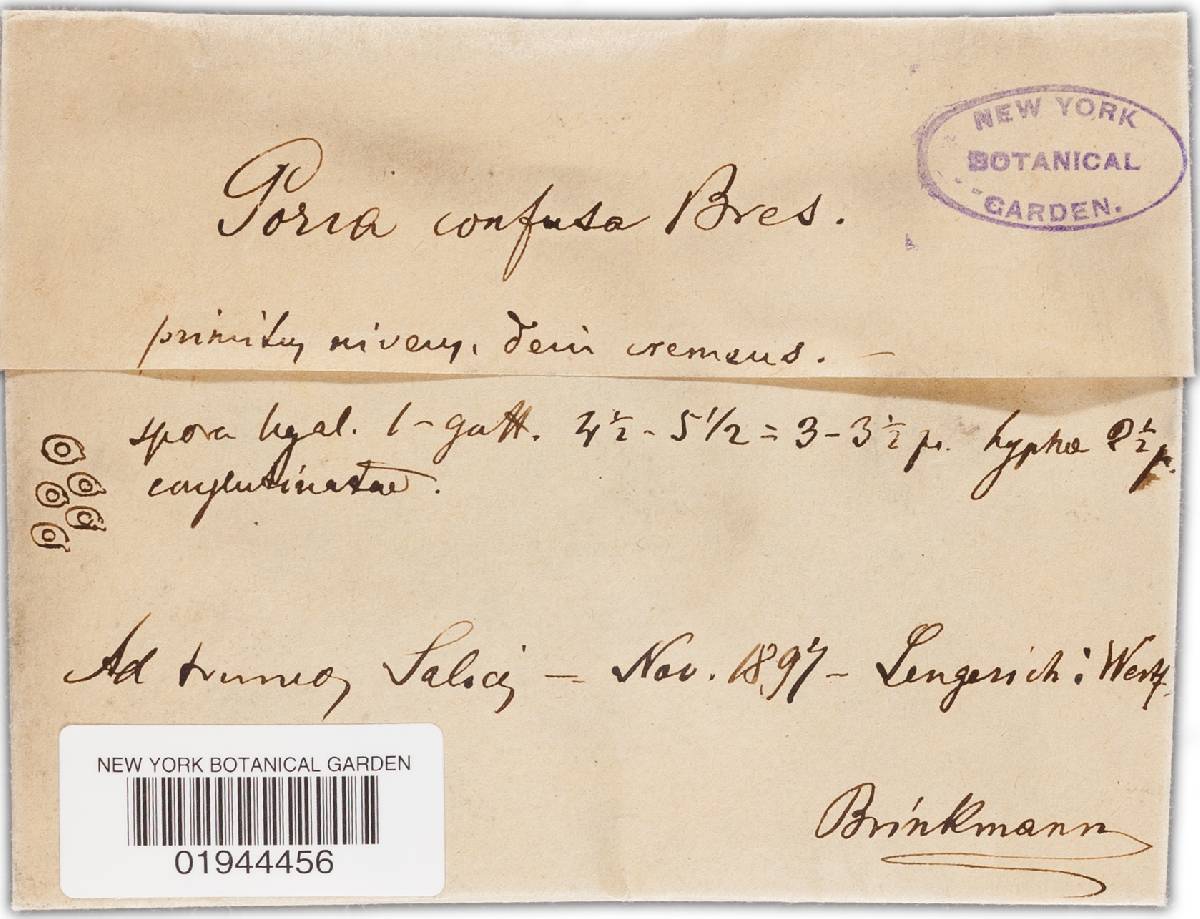 NEW YORK
BOTANICAL
GARDEN.
Poria confusa Bres.
primitus niveus, dein cremeus. —
spora hyal. 1-gutt. 4½ - 5 1/2 = 3 - 3½ µ. hyphae 2½ µ.
conglutinatae.
Ad truncos Salicis — Nov. 1897 — Lengerich i. Westf.
Brinkmann
NEW YORK BOTANICAL GARDEN
01944456